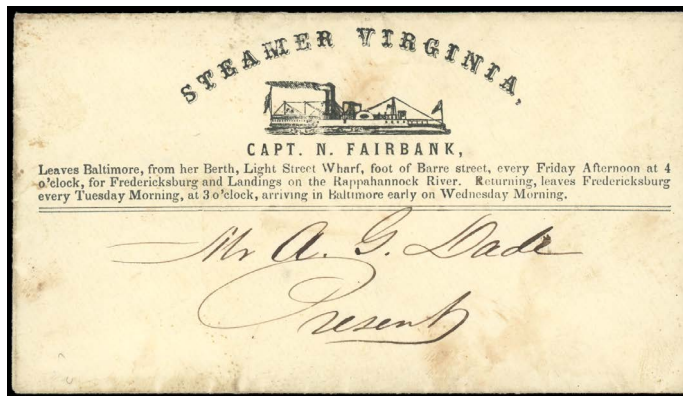 STEAMER VIRGINIA,
CAPT. N. FAIRBANK,
Leaves Baltimore, from her Berth, Light Street Wharf, foot of Barre street, every Friday Afternoon at 4
o'clock, for Fredericksburg and Landings on the Rappahannock River. Returning, leaves Fredericksburg
every Tuesday Morning, at 3 o'clock, arriving in Baltimore early on Wednesday Morning.
Mr A. G. Dade
Present